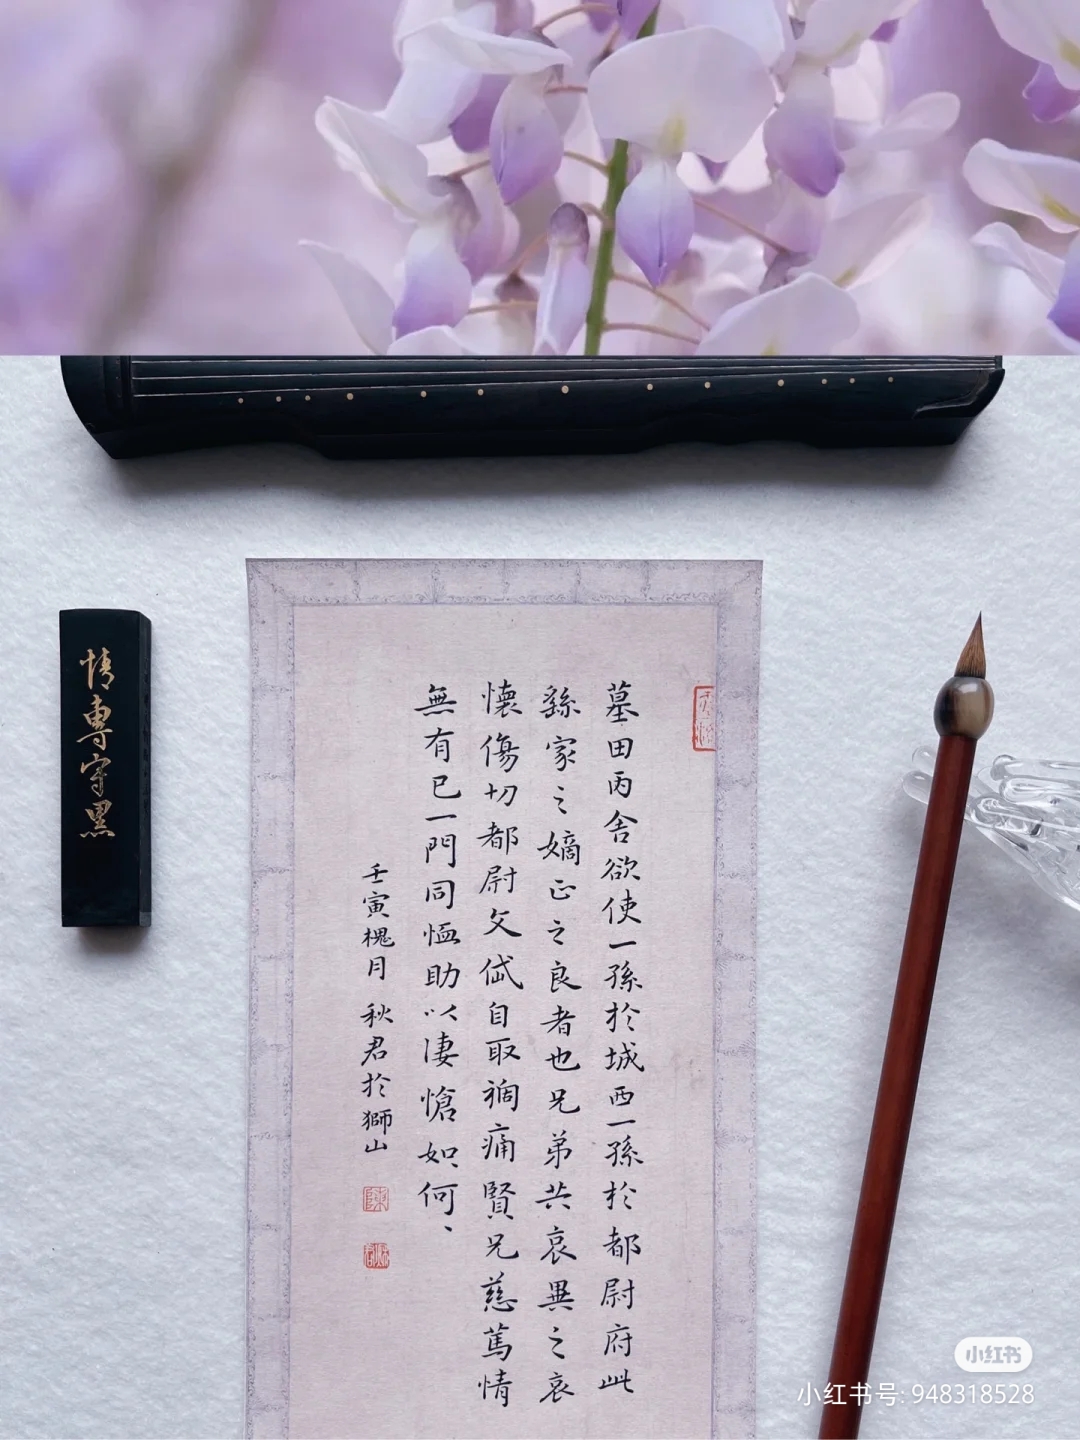 墓田丙舍欲使一孫於城西一孫於都尉府此
繇家之嫡正之良者也兄弟共哀異之哀
懷傷切都尉文岱自取禍痛賢兄慈篤情
無有已一門同恤助以凄愴如何、
壬寅槐月 秋君於獅山
情專守黑
小红书
小红书号: 948318528